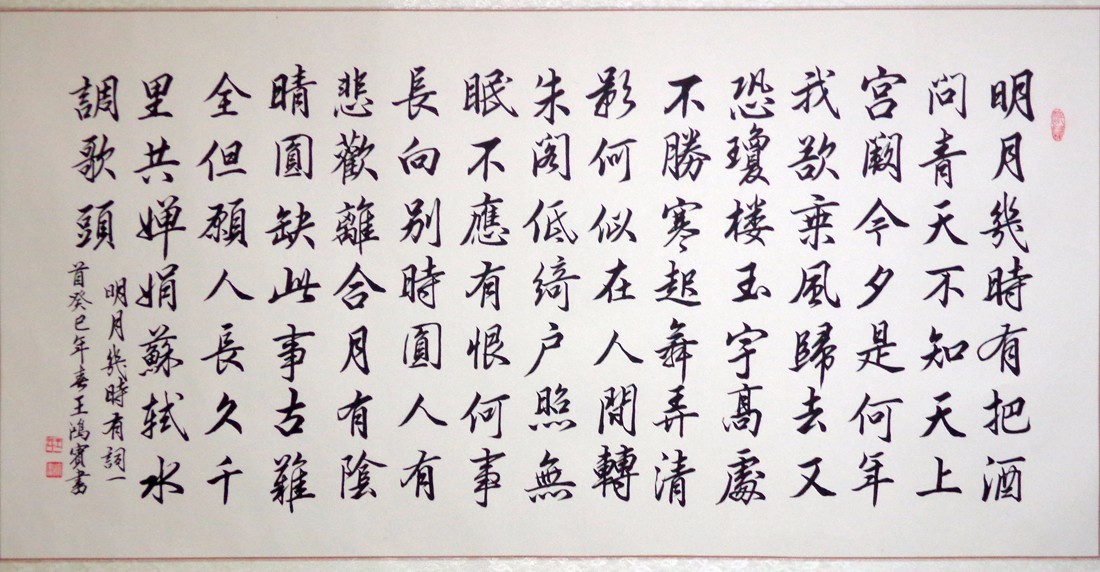 明月幾時有把酒
問青天不知天上
宮闕今夕是何年
我欲乗風歸去又
恐瓊楼玉宇髙處
不勝寒起舞弄清
影何似在人間轉
朱阁低绮户照無
眠不應有恨何事
長向别時圓人有
悲歡離合月有陰
晴圓缺此事古難
全但願人長久千
里共嬋娟蘇軾水
調歌頭
明月幾時有詞一
首癸巳年春王鴻賓書